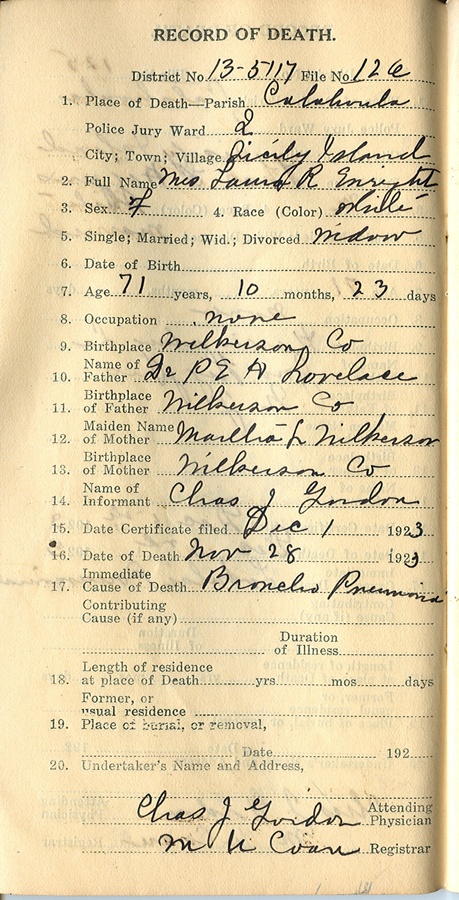 RECORD OF DEATH.
District No. 13-5117 File No. 126
1. Place of Death—Parish Catahoula
Police Jury Ward 2
City; Town; Village Sicily Island
2. Full Name Mrs Laura R Enright
3. Sex F 4. Race (Color) White
5. Single; Married; Wid.; Divorced Widow
6. Date of Birth
7. Age 71 years, 10 months, 23 days
8. Occupation none
9. Birthplace Wilkerson Co
10. Name of Father Dr P E H Lovelace
11. Birthplace of Father Wilkerson Co
12. Maiden Name of Mother Martha L Wilkerson
13. Birthplace of Mother Wilkerson Co
14. Name of Informant Chas J Gordon
15. Date Certificate filed Dec 1 1923
16. Date of Death Nov 28 1923
17. Immediate Cause of Death Broncho Pneumonia
Contributing Cause (if any)
Duration of Illness
18. Length of residence at place of Death yrs. mos. days
Former, or usual residence
19. Place of burial, or removal,
Date 192
20. Undertaker's Name and Address,
Chas J Gordon Attending Physician
M Registrar